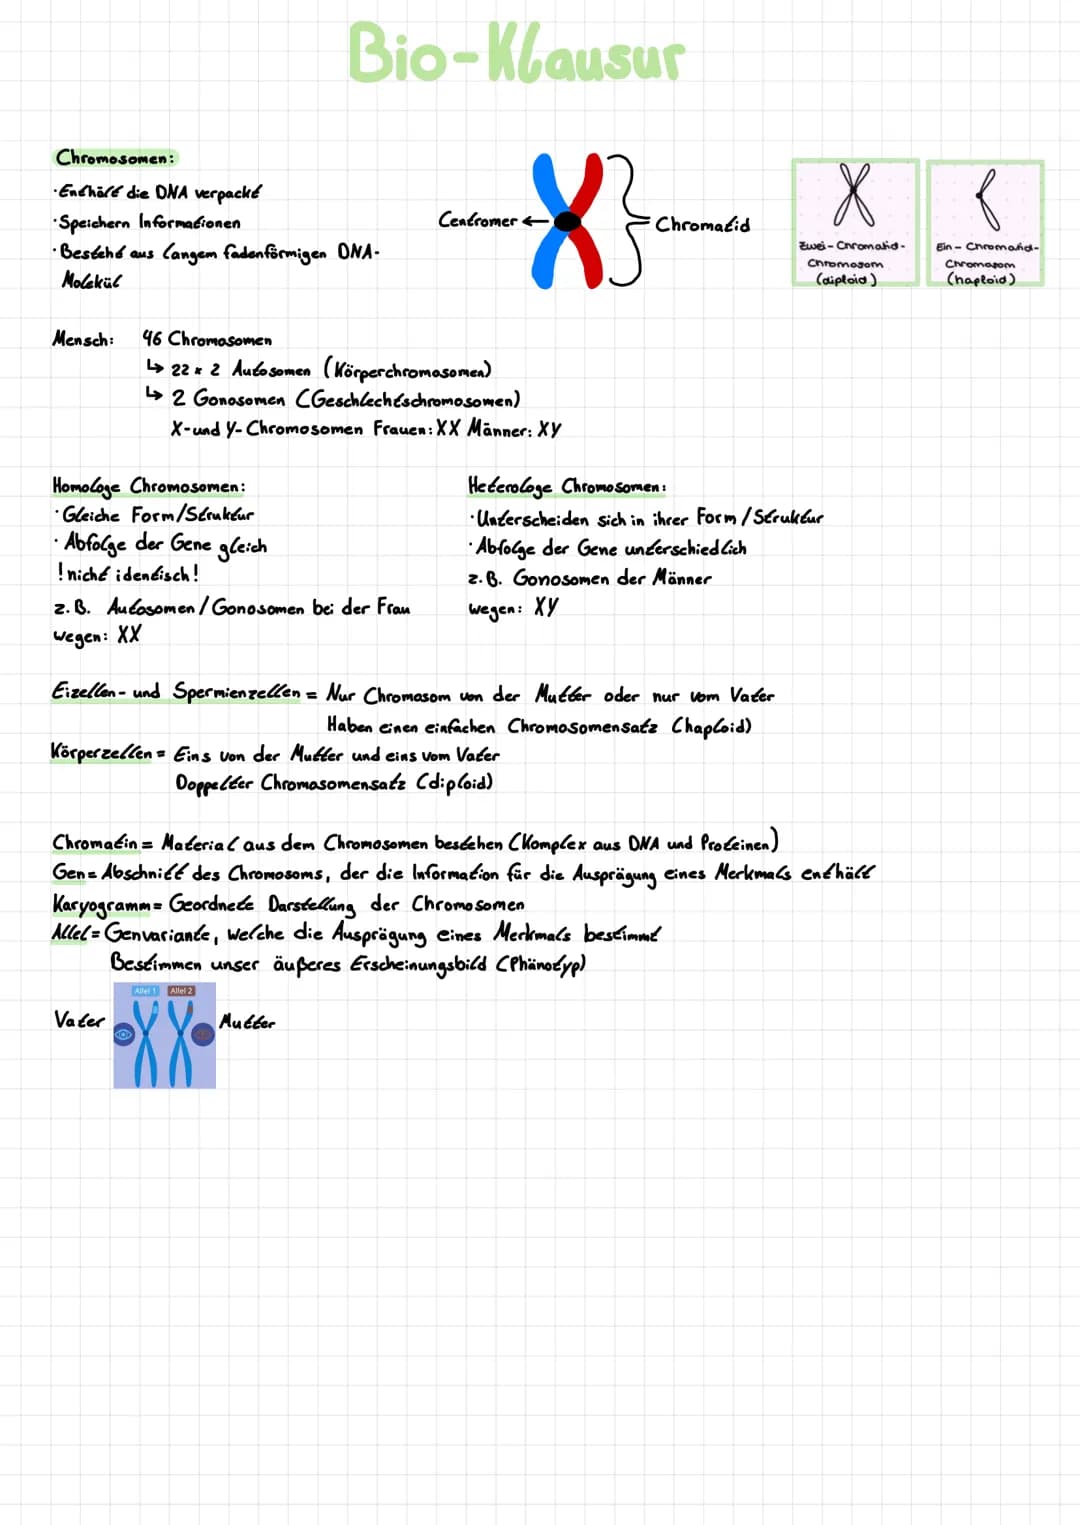 Bio-Klausur
Chromosomen:
·Enthält die DNA verpackt
·Speichern Informationen
·Besteht aus langem fadenförmigen DNA-
Molekül
Centromer
Chromatid
Zwei-Chromatid-
Chromosom
(diploid)
Ein-Chromatid-
Chromosom
(haploid)
Mensch: 46 Chromosomen
↳ 22 x 2 Autosomen (Körperchromosomen)
↳ 2 Gonosomen (Geschlechtschromosomen)
X-und Y-Chromosomen Frauen: XX Männer: XY
Homologe Chromosomen:
·Gleiche Form/Struktur
·Abfolge der Gene gleich
!nicht identisch!
z.B. Autosomen/Gonosomen bei der Frau
wegen: XX
Heterologe Chromosomen:
·Unterscheiden sich in ihrer Form/Struktur
·Abfolge der Gene unterschiedlich
z.B. Gonosomen der Männer
wegen: XY
Eizellen- und Spermienzellen = Nur Chromosom von der Mutter oder nur vom Vater
Haben einen einfachen Chromosomensatz (haploid)
Körperzellen = Eins von der Mutter und eins vom Vater
Doppelter Chromosomensatz (diploid)
Chromatin = Material aus dem Chromosomen bestehen (Komplex aus DNA und Proteinen)
Gen = Abschnitt des Chromosoms, der die Information für die Ausprägung eines Merkmals enthält
Karyogramm = Geordnete Darstellung der Chromosomen
Allel = Genvariante, welche die Ausprägung eines Merkmals bestimmt
Bestimmen unser äußeres Erscheinungsbild (Phänotyp)
Allel 1 Allel 2
Vater Mutter